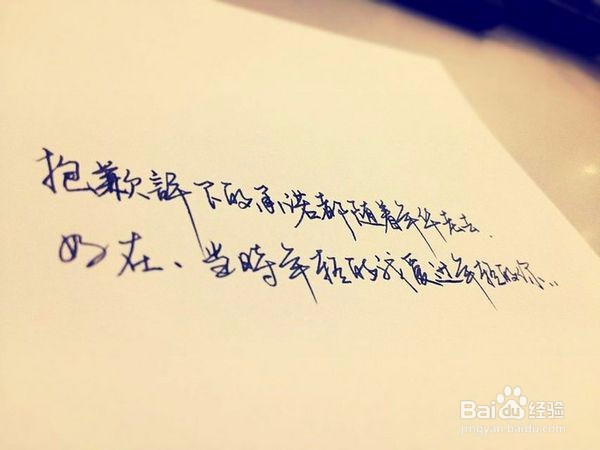 抱歉許下的承诺都随着年华老去.
好在、当時年轻的我爱过年轻的你..
Baidu经验
jingyan.baidu.com